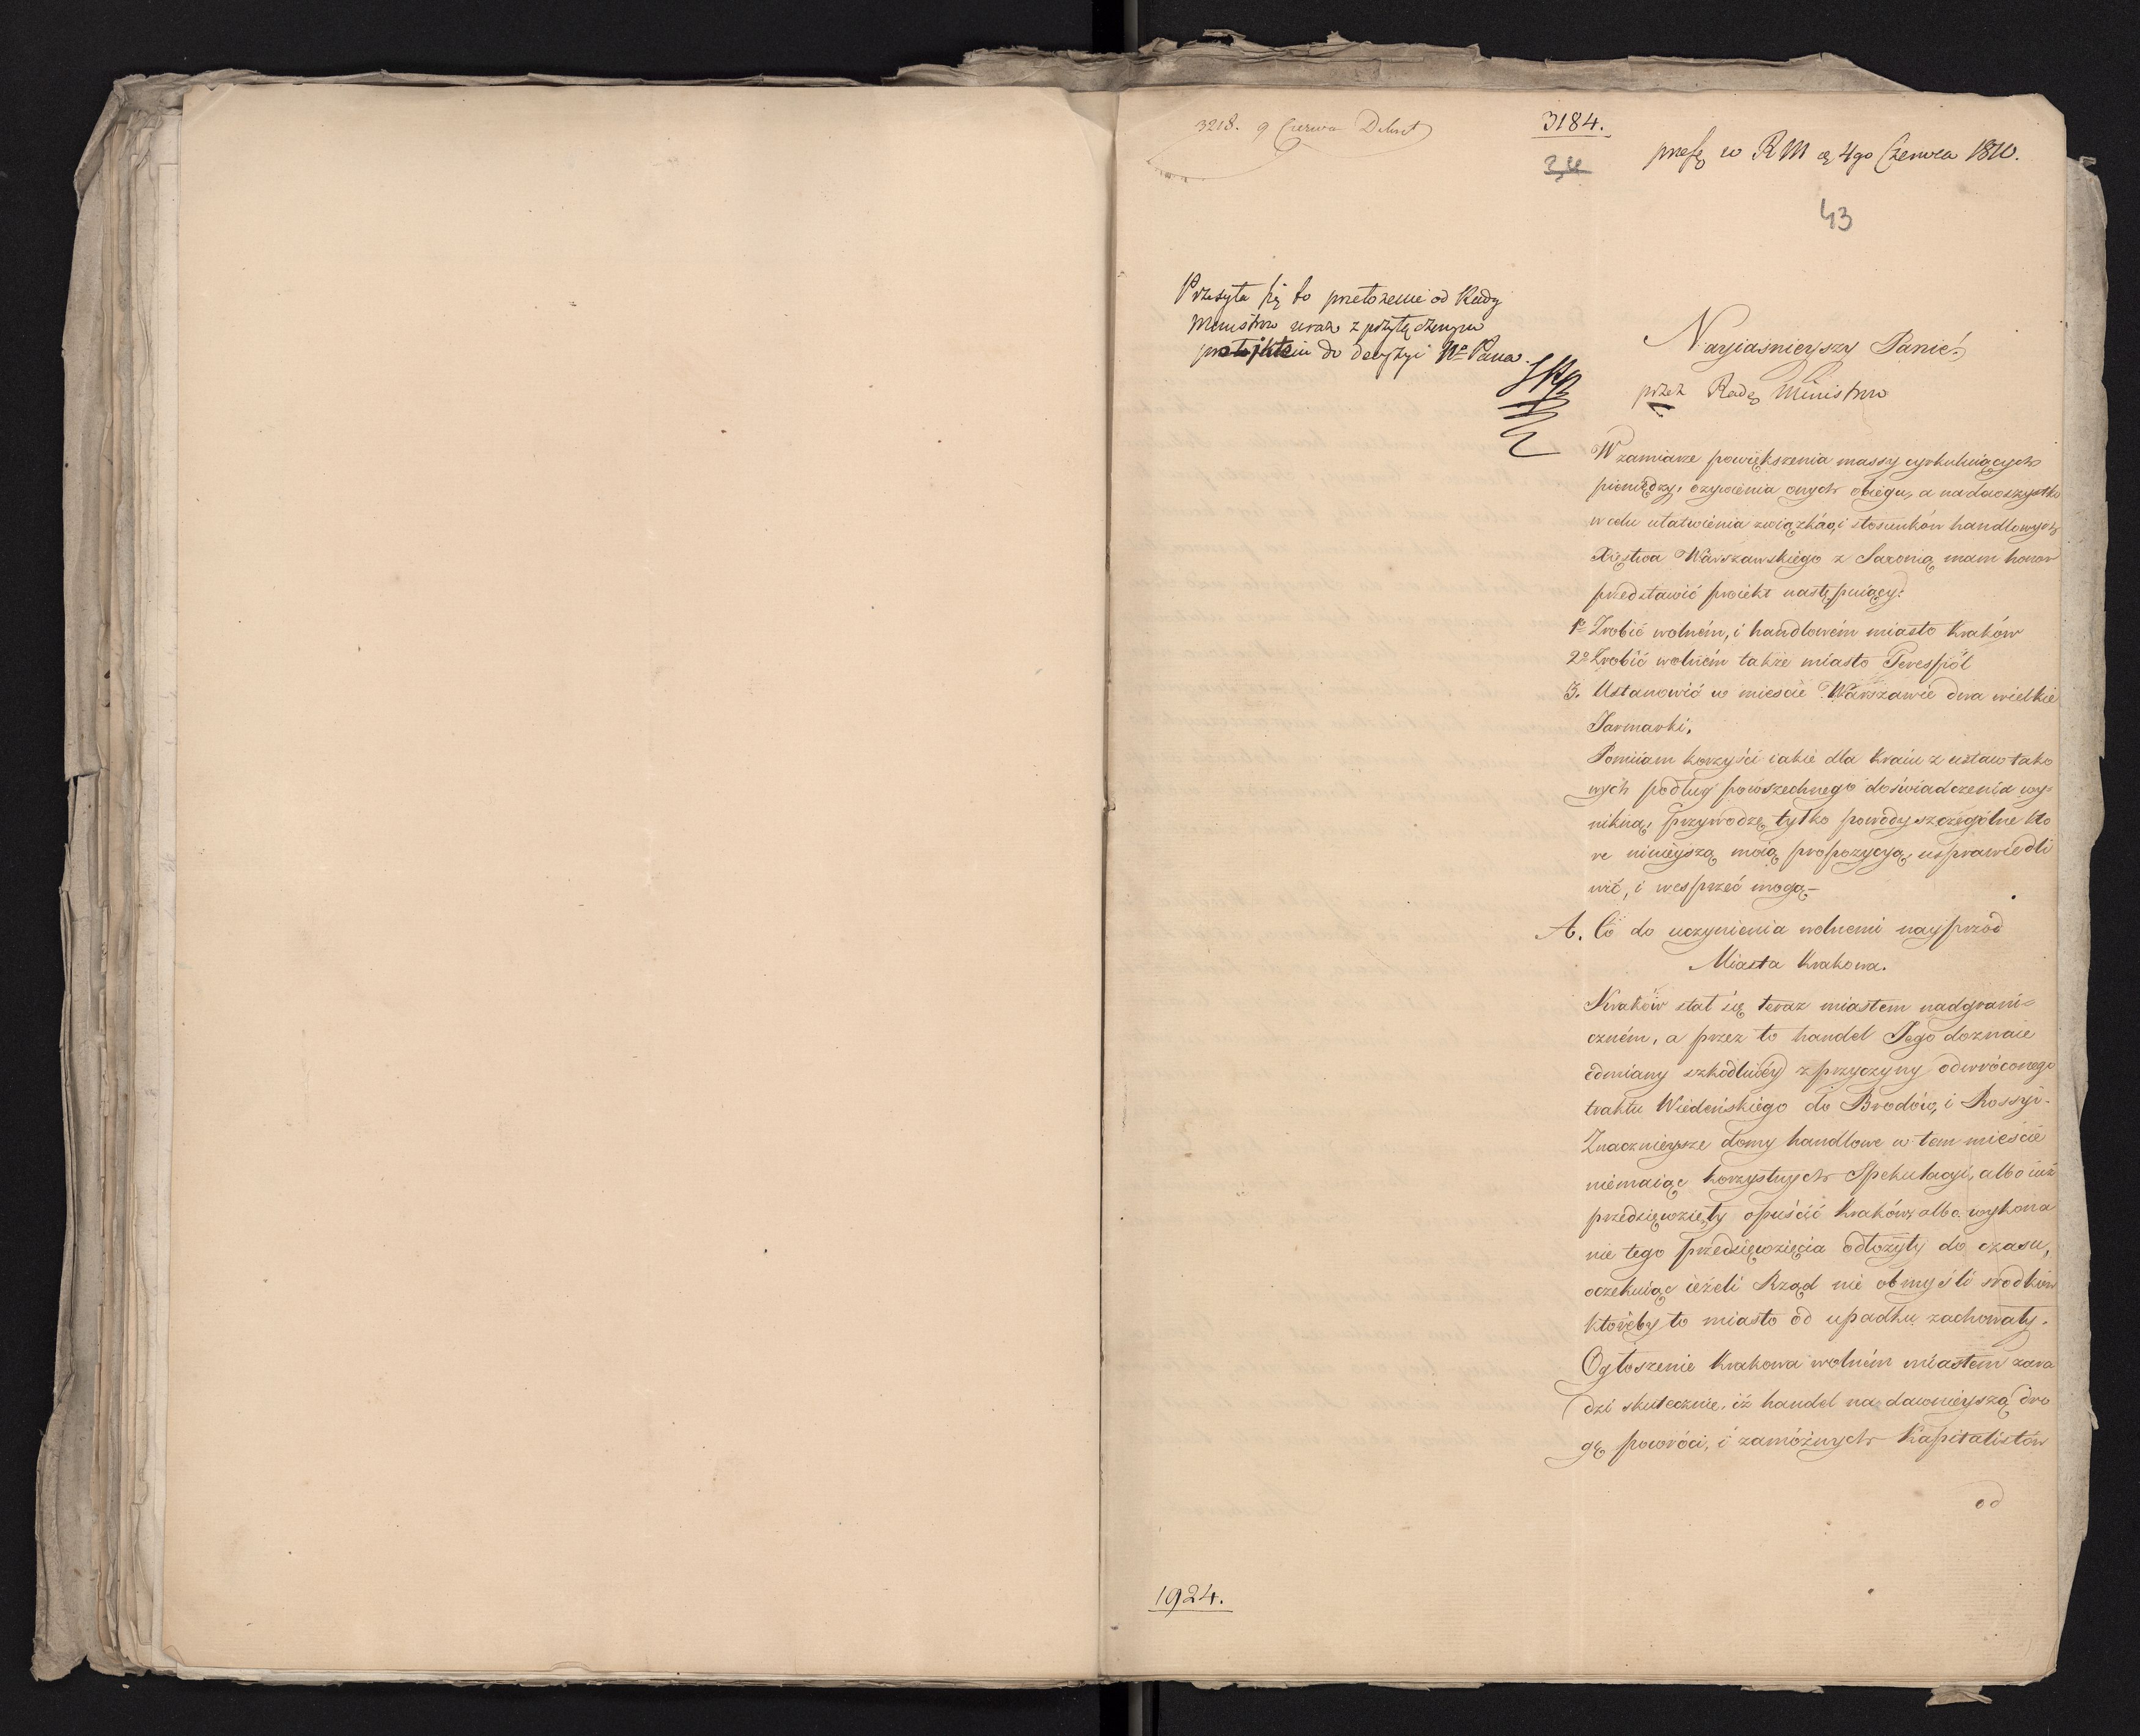 3218. 9 Czerwca
3184.
w RM d. 4go Czerwca 1810.
43
Przesyła się to przełożenie od Rady
Ministrów wraz z przyłączonym
do decyzyi Nº Pana.
Nayiasnieyszy Panie!
przez Radę Ministrów
W zamiarze powiększenia massy cyrkuluiących
pieniędzy, ożywienia onych obiegu, a nadewszystko
w celu ułatwienia związków, i stosunków handlowych
Xięstwa Warszawskiego z Saxonią mam honor
przedstawić proiekt następuiący:
1º Zrobić wolném, i handlowém miasto Kraków
2º Zrobić wolném także miasto Terespól
3. Ustanowić w mieście Warszawie dwa wielkie
Jarmarki.
Pomiiam korzyści iakie dla Kraiu z ustaw tako
wych podług powszechnego doświadczenia wy=
nikną, przywodzę tylko powody szczególne któ
re nineyszą moią propozycyą, usprawiedli
wić, i wesprzeć mogą –
A. Co do uczynienia wolnemi nayprzód
Miasta Krakowa.
Kraków stał się teraz miastem nadgrani=
czném, a przez to handel Jego doznaie
odmiany szkodliwéy z przyczyny odwróconego
traktu Wiedeńskiego do Brodów, i Rossyi.
Znacznieysze domy handlowe w tem mieście
niemaiąc korzystnych Spekulacyi, albo iuż
przedsięwzięły opuścić Kraków, albo wykona
nie tego przedsięwzięcia odłożyły do czasu,
oczekuiąc ieżeli Rząd nie obmyśli srodków
któreby to miasto od upadku zachowały.
Ogłoszenie Krakowa wolném miastem zara
dzi skutecznie, iż handel na dawnieyszą dro
gę powróci, i zamożnych Kapitalistów
od
1924.